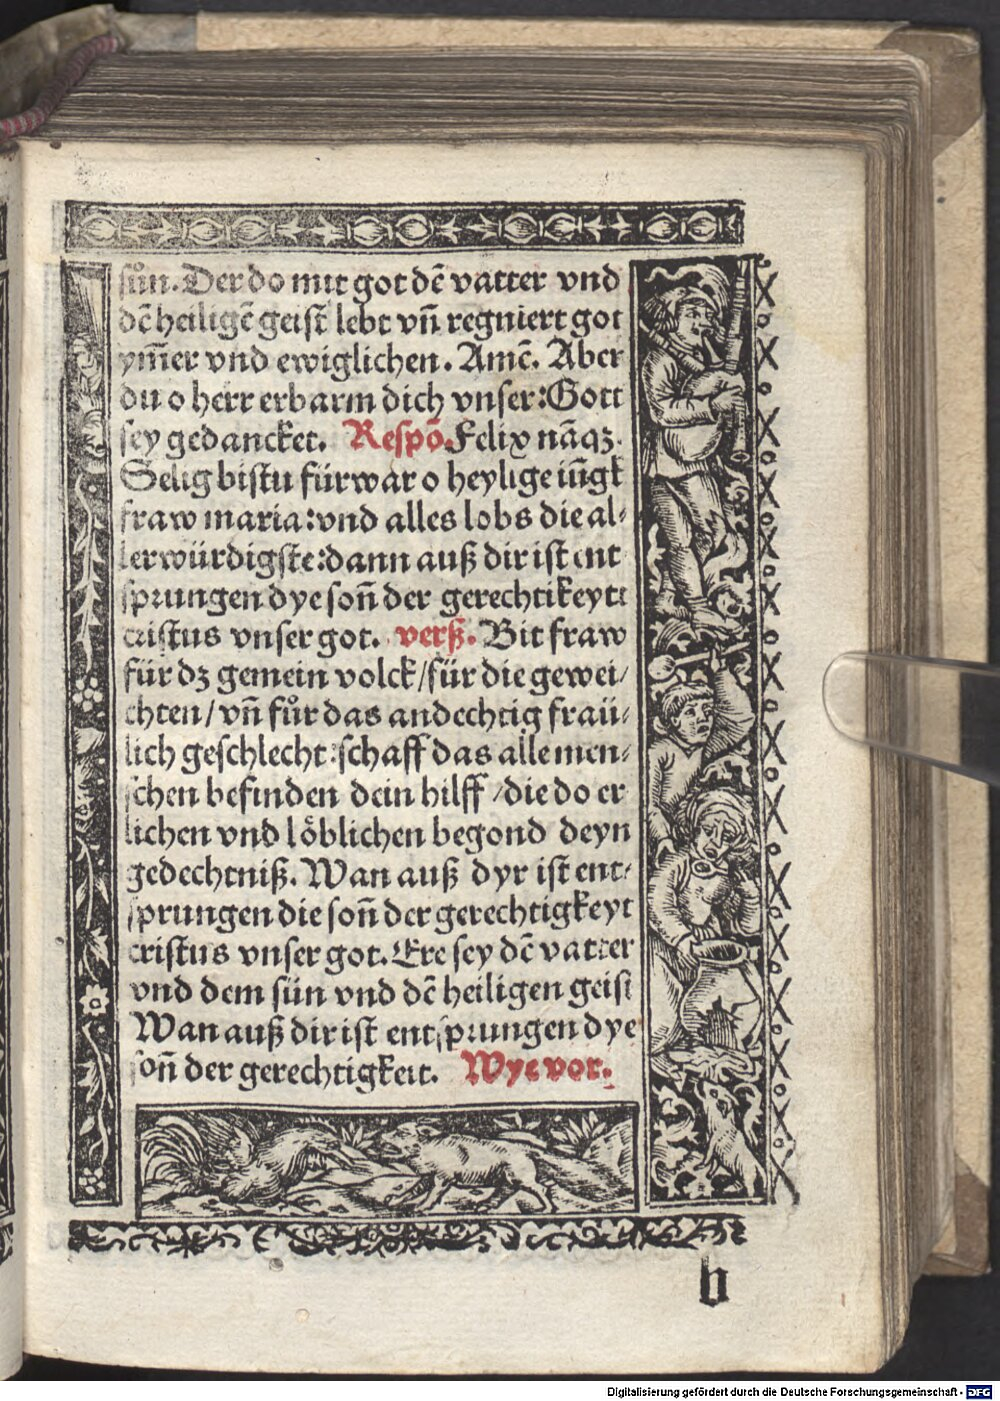 sün. Der do mit got dē vatter vnd
dē heiligē geist lebt vn̄ regniert got
ym̄er vnd ewiglichen. Amē. Aber
du o herr erbarm dich vnser: Gott
sey gedancket. Respō. Felix nāqꝫ.
Selig bistu fürwar o heylige iūgk
fraw maria: vnd alles lobs die al⸗
lerwürdigste: dann auß dir ist ent
sprungen dye son̄ der gerechtikeytt
cristus vnser got. verß. Bit fraw
für dꝫ gemein volck/ für die gewei/
chten/ vn̄ fůr das andechtig fraü⸗
lich geschlecht: schaff das alle men⸗
schen befinden dein hilff/ die do er
lichen vnd löblichen begond deyn
gedechtniß. Wan auß dyr ist ent⸗
sprungen die son̄ der gerechtigkeyt
cristus vnser got. Ere sey dē vatter
vnd dem sün vnd dē heiligen geist
Wan auß dir ist entsprungen dye
son̄ der gerechtigkeit. Wye vor.
b
Digitalisierung gefördert durch die Deutsche Forschungsgemeinschaft - DFG